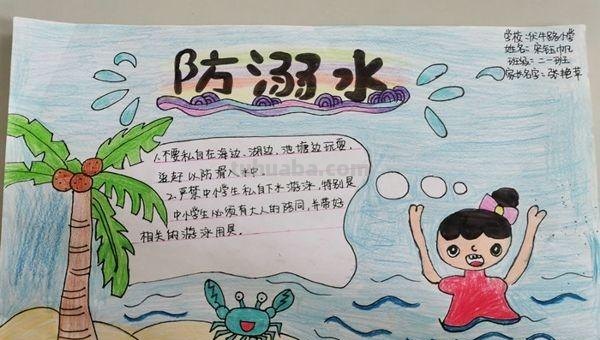 防溺水
学校:伏牛路小学
姓名:宋钰帆
班级:二一班
家长名字:张艳
1.不要私自在海边、湖边、池塘边玩耍,
好以防滑入水中.
2.严禁中小学生私自下水游泳,特别是
中小学生必须有大人的陪同,并带好
相关的游泳用具。
tuhuaba.com